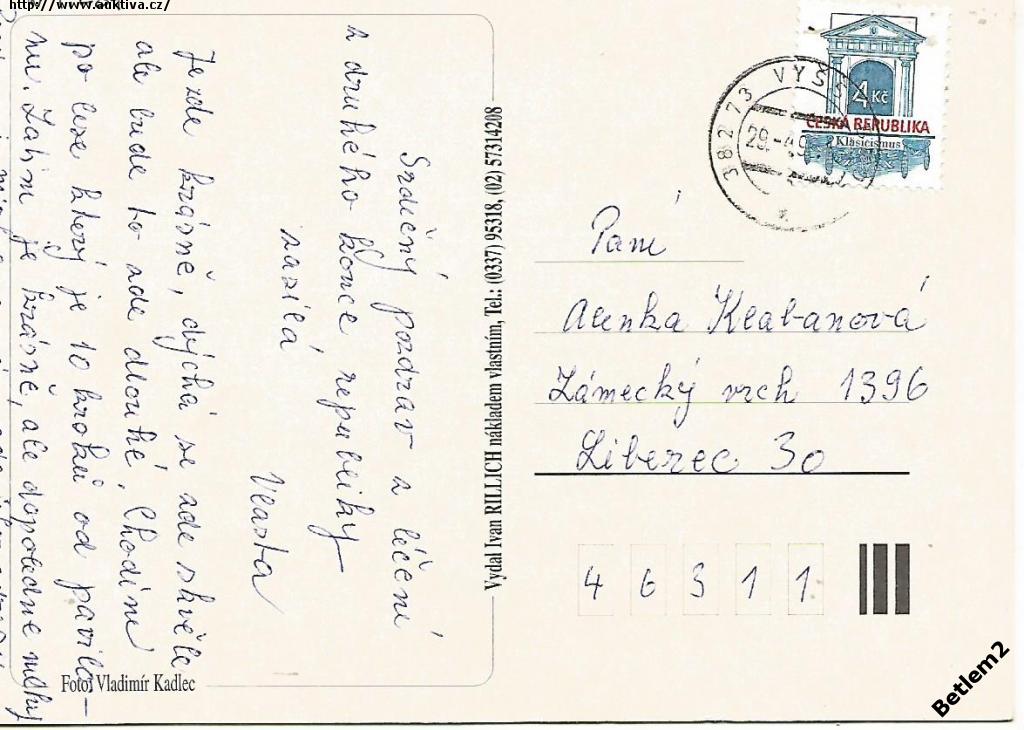 http://www.auktiva.cz/
Srdečný pozdrav z léčení
z druhého konce republiky
zasílá
Vlasta
Je zde krásně, dýchá se zde skvěle
ale bude to zde dlouhé. Chodíme
po lese který je 10 kroků od pavilo-
nu. Zatím je krásně, ale dopoledne
Foto: Vladimír Kadlec
Vydal Ivan RILLICH nákladem vlastním, Tel.: (0337) 95318, (02) 57314208
382 73 VYŠŠ
29.-4.9
4 Kč
ČESKÁ REPUBLIKA
Klasicismus
Paní
Alenka Klabanová
Zámecký vrch 1396
Liberec 30
46311
Betlem2